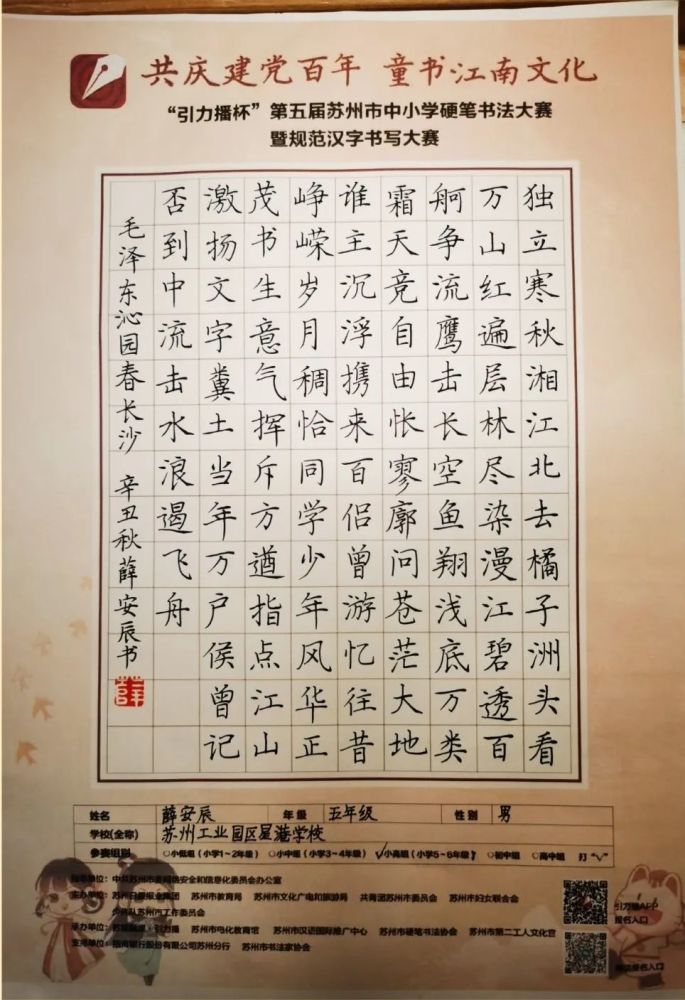 共庆建党百年 童书江南文化
“引力播杯”第五届苏州市中小学硬笔书法大赛
暨规范汉字书写大赛
独立寒秋湘江北去橘子洲头看
万山红遍层林尽染漫江碧透百
舸争流鹰击长空鱼翔浅底万类
霜天竞自由怅寥廓问苍茫大地
谁主沉浮携来百侣曾游忆往昔
峥嵘岁月稠恰同学少年风华正
茂书生意气挥斥方遒指点江山
激扬文字粪土当年万户侯曾记
否到中流击水浪遏飞舟
毛泽东沁园春长沙 辛丑秋薛安辰书
姓名 薛安辰 年级 五年级 性别 男
学校(全称) 苏州工业园区星港学校
参赛组别 ○小低组(小学1~2年级) ○小中组(小学3~4年级) ✓小高组(小学5~6年级) ○初中组 ○高中组 打“✓”
指导单位：中共苏州市委网络安全和信息化委员会办公室
主办单位：苏州日报报业集团 苏州市教育局 苏州市文化广电和旅游局 共青团苏州市委员会 苏州市妇女联合会
少先队苏州市工作委员会
承办单位：引力播 苏州市电化教育馆 苏州市汉语国际推广中心 苏州市硬笔书法协会 苏州市第二工人文化宫
支持单位：招商银行股份有限公司苏州分行 苏州市书法家协会
引力播APP
报名入口
报名入口